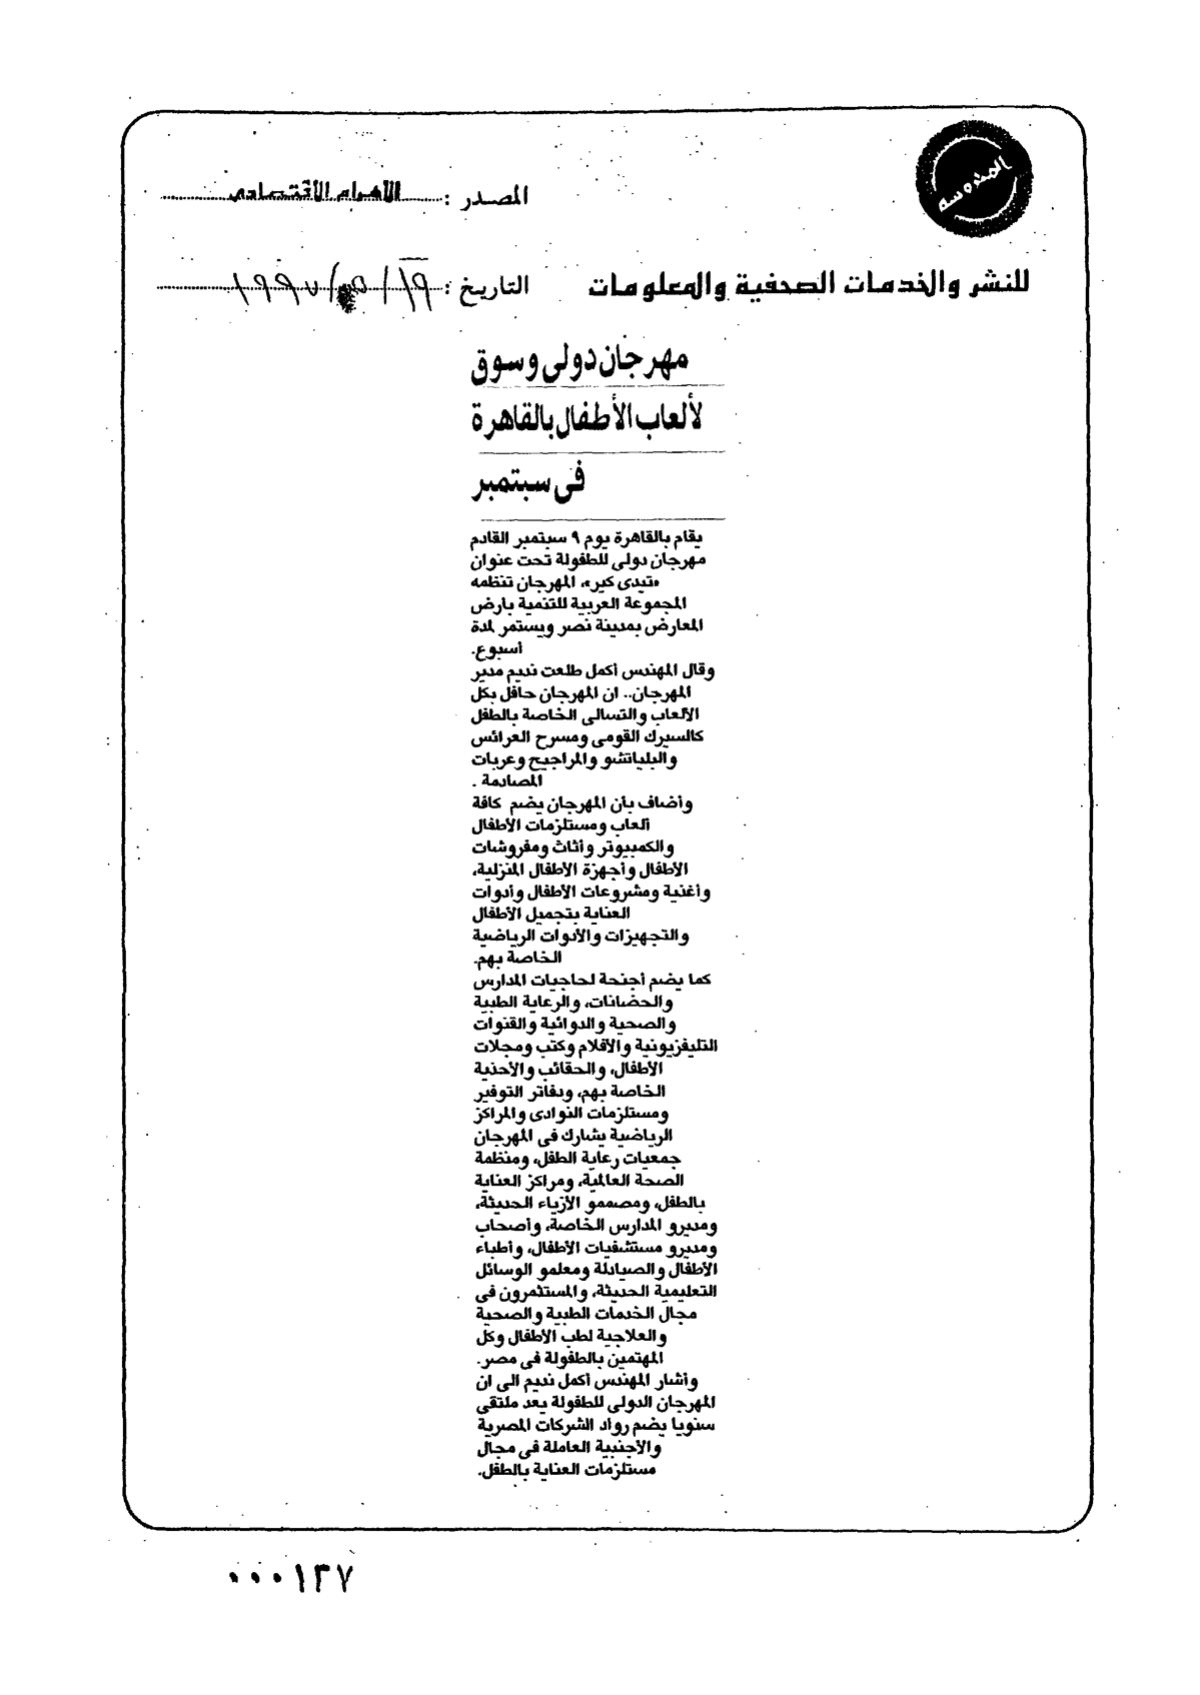 المحروسة
المصدر : الأهرام الاقتصادى
للنشر والخدمات الصحفية والمعلومات
التاريخ : ١٩ / ٥ / ١٩٩٧
مهرجان دولى وسوق
لألعاب الأطفال بالقاهرة
فى سبتمبر
يقام بالقاهرة يوم ٩ سبتمبر القادم
مهرجان دولى للطفولة تحت عنوان
«تيدى كير»، المهرجان تنظمه
المجموعة العربية للتنمية بارض
المعارض بمدينة نصر ويستمر لمدة
أسبوع.
وقال المهندس أكمل طلعت نديم مدير
المهرجان.. ان المهرجان حافل بكل
الألعاب والتسالى الخاصة بالطفل
كالسيرك القومى ومسرح العرائس
والبلياتشو والمراجيح وعربات
المصادمة .
وأضاف بأن المهرجان يضم كافة
ألعاب ومستلزمات الأطفال
والكمبيوتر وأثاث ومفروشات
الأطفال وأجهزة الأطفال المنزلية،
وأغذية ومشروعات الأطفال وأدوات
العناية بتجميل الأطفال
والتجهيزات والأدوات الرياضية
الخاصة بهم.
كما يضم أجنحة لحاجيات المدارس
والحضانات، والرعاية الطبية
والصحية والدوائية والقنوات
التليفزيونية والأفلام وكتب ومجلات
الأطفال، والحقائب والأحذية
الخاصة بهم، ودفاتر التوفير
ومستلزمات النوادى والمراكز
الرياضية يشارك فى المهرجان
جمعيات رعاية الطفل، ومنظمة
الصحة العالمية، ومراكز العناية
بالطفل، ومصممو الأزياء الحديثة،
ومديرو المدارس الخاصة، وأصحاب
ومديرو مستشفيات الأطفال، وأطباء
الأطفال والصيادلة ومعلمو الوسائل
التعليمية الحديثة، والمستثمرون فى
مجال الخدمات الطبية والصحية
والعلاجية لطب الأطفال وكل
المهتمين بالطفولة فى مصر.
وأشار المهندس أكمل نديم الى ان
المهرجان الدولى للطفولة يعد ملتقى
سنويا يضم رواد الشركات المصرية
والأجنبية العاملة فى مجال
مستلزمات العناية بالطفل.
٠٠٠١٣٧